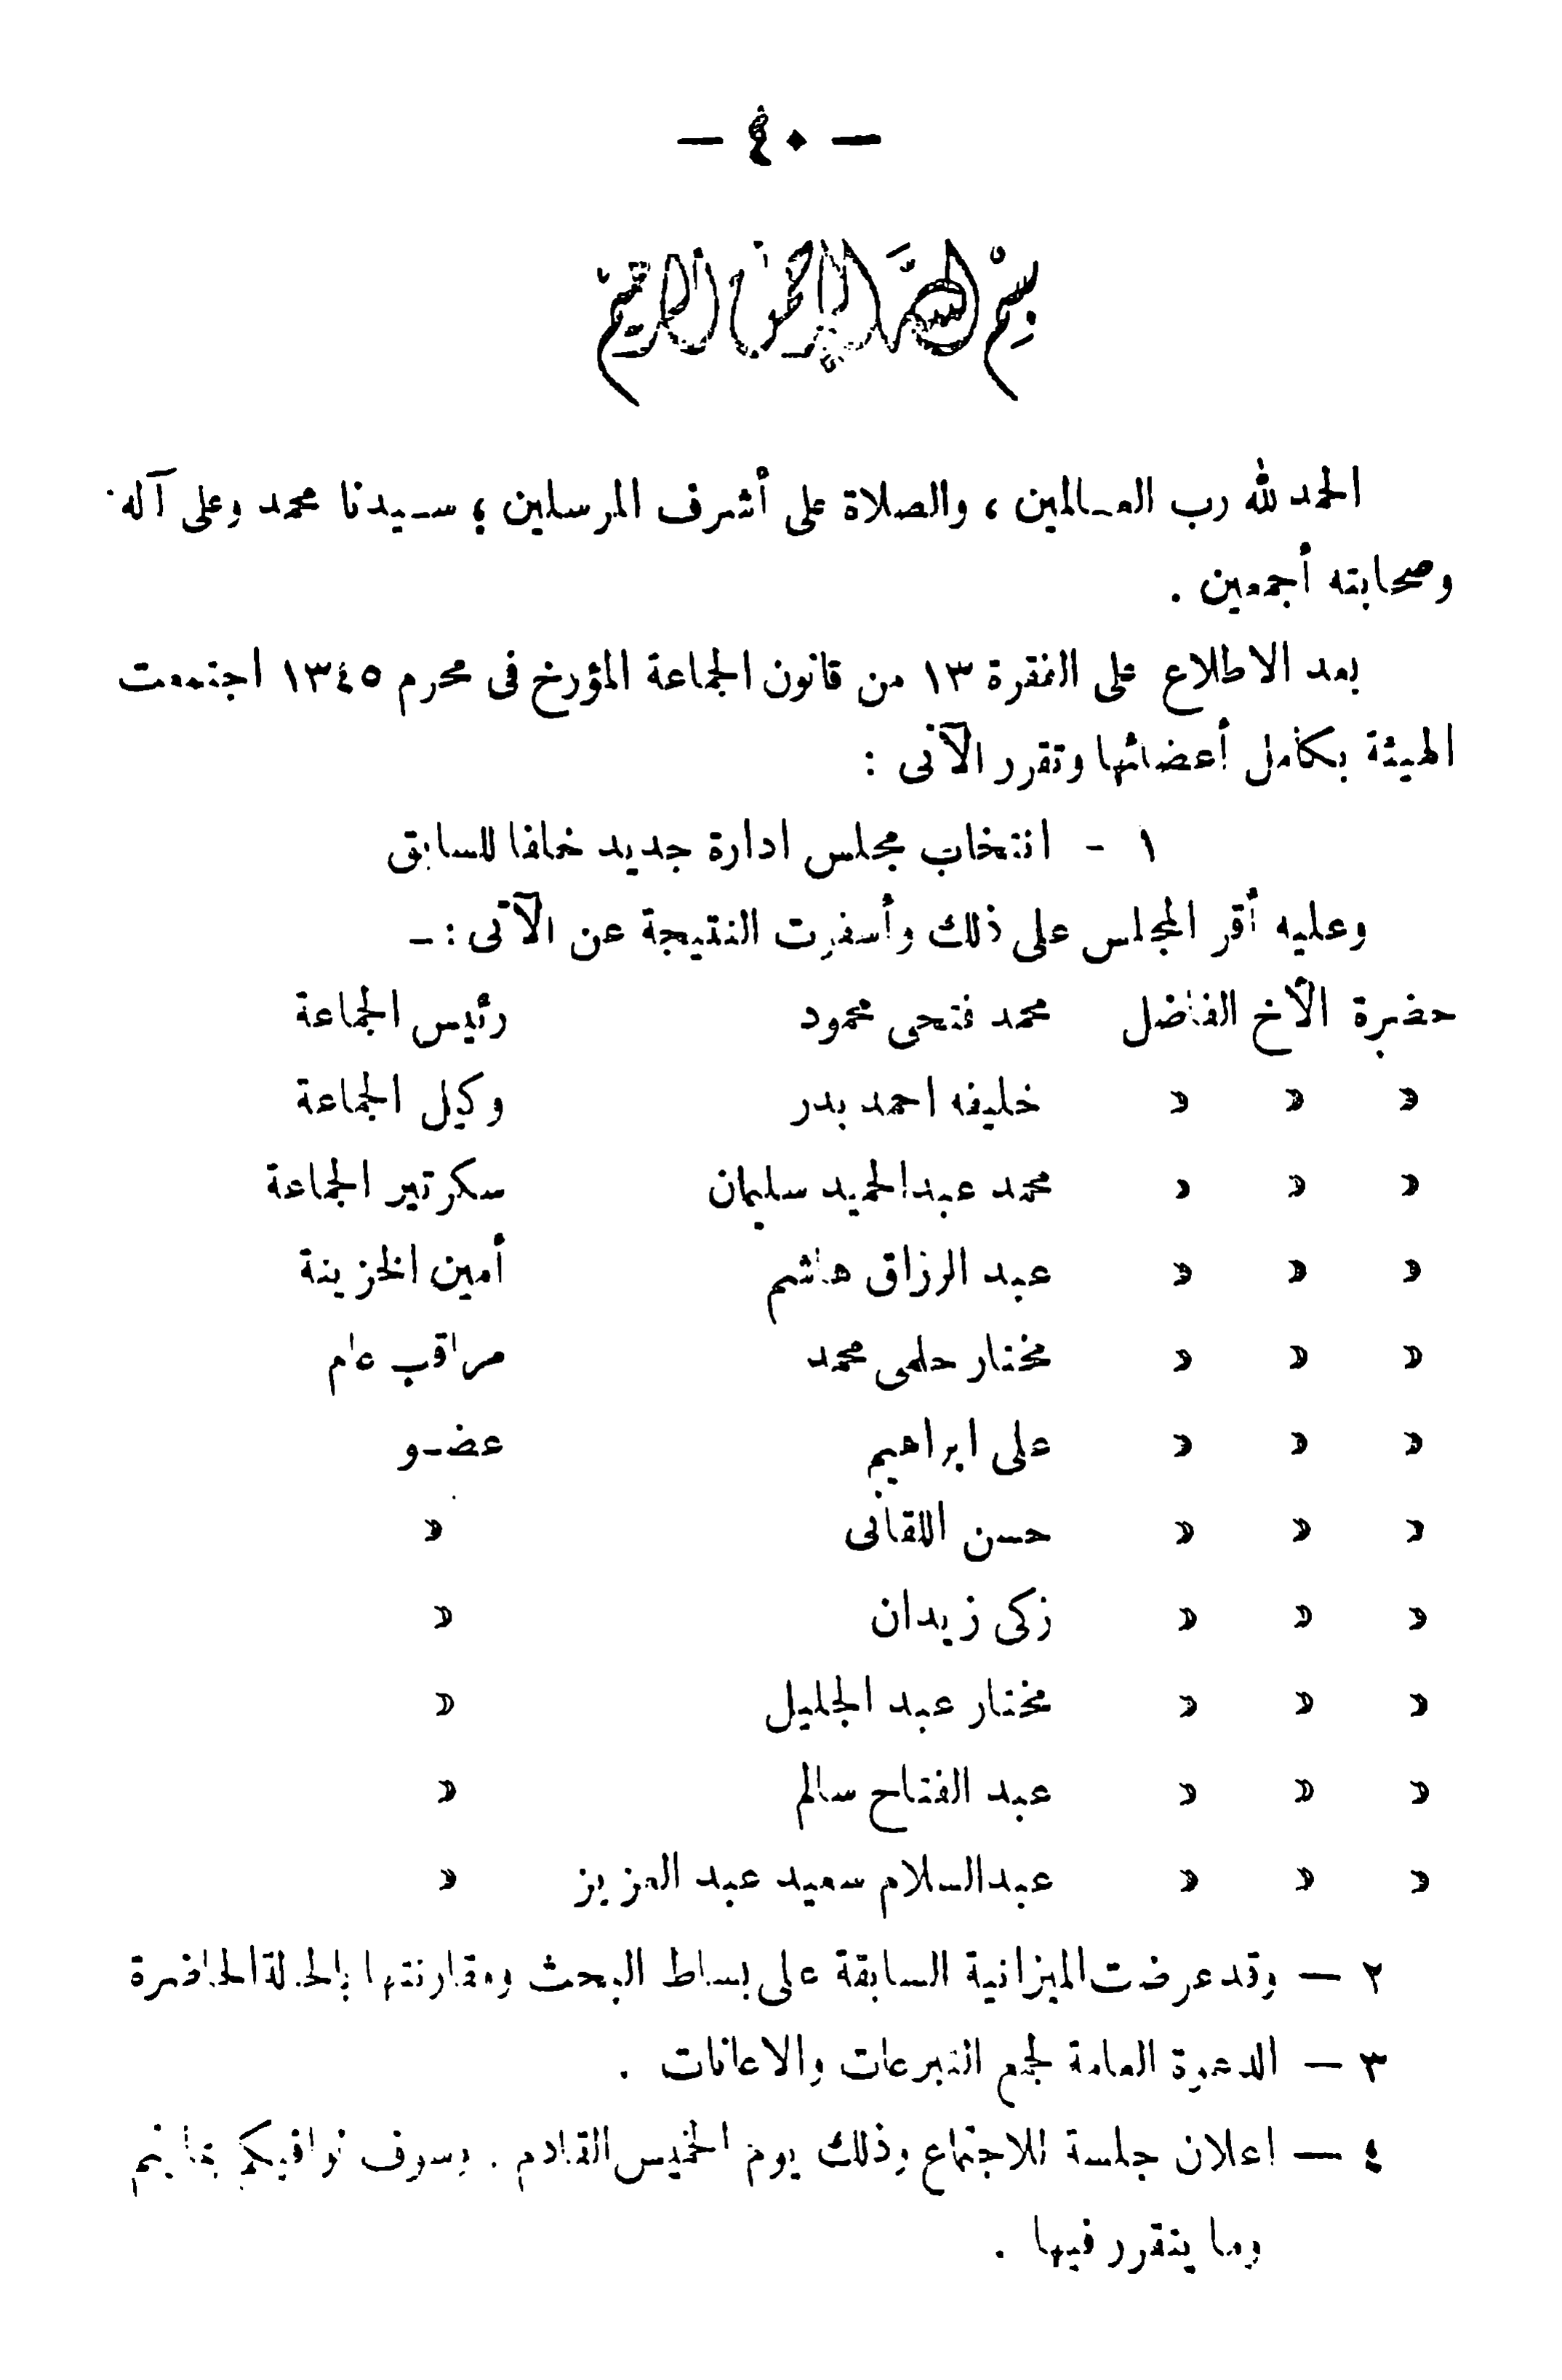 — ٤٠ —
بسم الله الرحمن الرحيم
الحمد لله رب العـالمين ، والصلاة على أشرف المرسلين ؛ سـيدنا محمد وعلى آله
وصحابته أجمعين .
بعد الاطلاع على الفقرة ١٣ من قانون الجماعة المؤرخ فى محرم ١٣٤٥ اجتمعت
الهيئة بكامل أعضائها وتقرر الآتى :
١ - انتخاب مجلس ادارة جديد خلفا للسابق
وعليه أقر المجلس على ذلك وأسفرت النتيجة عن الآتى :ـ
حضرة الأخ الفاضل محمد فتحى محمود رئيس الجماعة
« « « خليفه احمد بدر وكيل الجماعة
« « « محمد عبدالحميد سليمان سكرتير الجماعة
« « « عبد الرزاق هاشم أمين الخزينة
« « « مختار حلمى محمد مراقب عام
« « « على ابراهيم عضـو
« « « حسن اللقانى «
« « « زكى زيدان «
« « « مختار عبد الجليل «
« « « عبد الفتاح سالم «
« « « عبدالسلام سعيد عبد العزيز «
٢ — وقد عرضت الميزانية السابقة على بساط البحث ومقارنتها بالحالة الحاضرة
٣ — الدعوة العامة لجمع التبرعات والاعانات .
٤ — اعلان جلسة للاجتماع وذلك يوم الخميس القادم . وسوف نوافيكم بما يتم
وما يتقرر فيها .